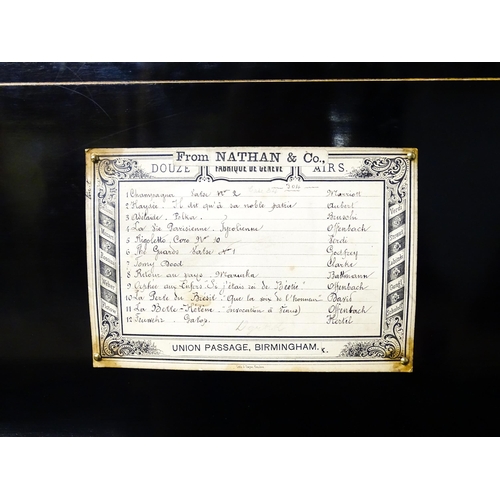 From NATHAN & Co.,
DOUZE FABRIQUE DE GENEVE AIRS.
1 Champagne Valse No 2 Marriott
2 Haydée. Il dit qu'à sa noble patrie Auber
3 Adelaide. Polka.
4 La Vie Parisienne. Tyrolienne Offenbach
5 Rigoletto Coro No 10 Verdi
6 The Guards Valse No 1 Godfrey
7 Tommy Dodd Clarke
8 Retour au pays. Mazurka
9 Orphée aux Enfers Si j'étais roi de Béotie! Offenbach
10 La Perle du Bresil. Que la voix de l'homme David
11 La Belle-Hélène (Invocation à Venus) Offenbach
12 Galop. Hertel
UNION PASSAGE, BIRMINGHAM.